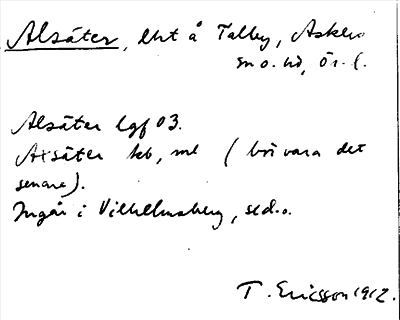 Alsäter, lht å Talby, Askers
sn o. hd, Ör. l.
Alsäter lgf 03.
Axsäter kb, ml (bör vara det
senare).
Ingår i Vilhelmsberg, sed..
T. Ericsson 1912.